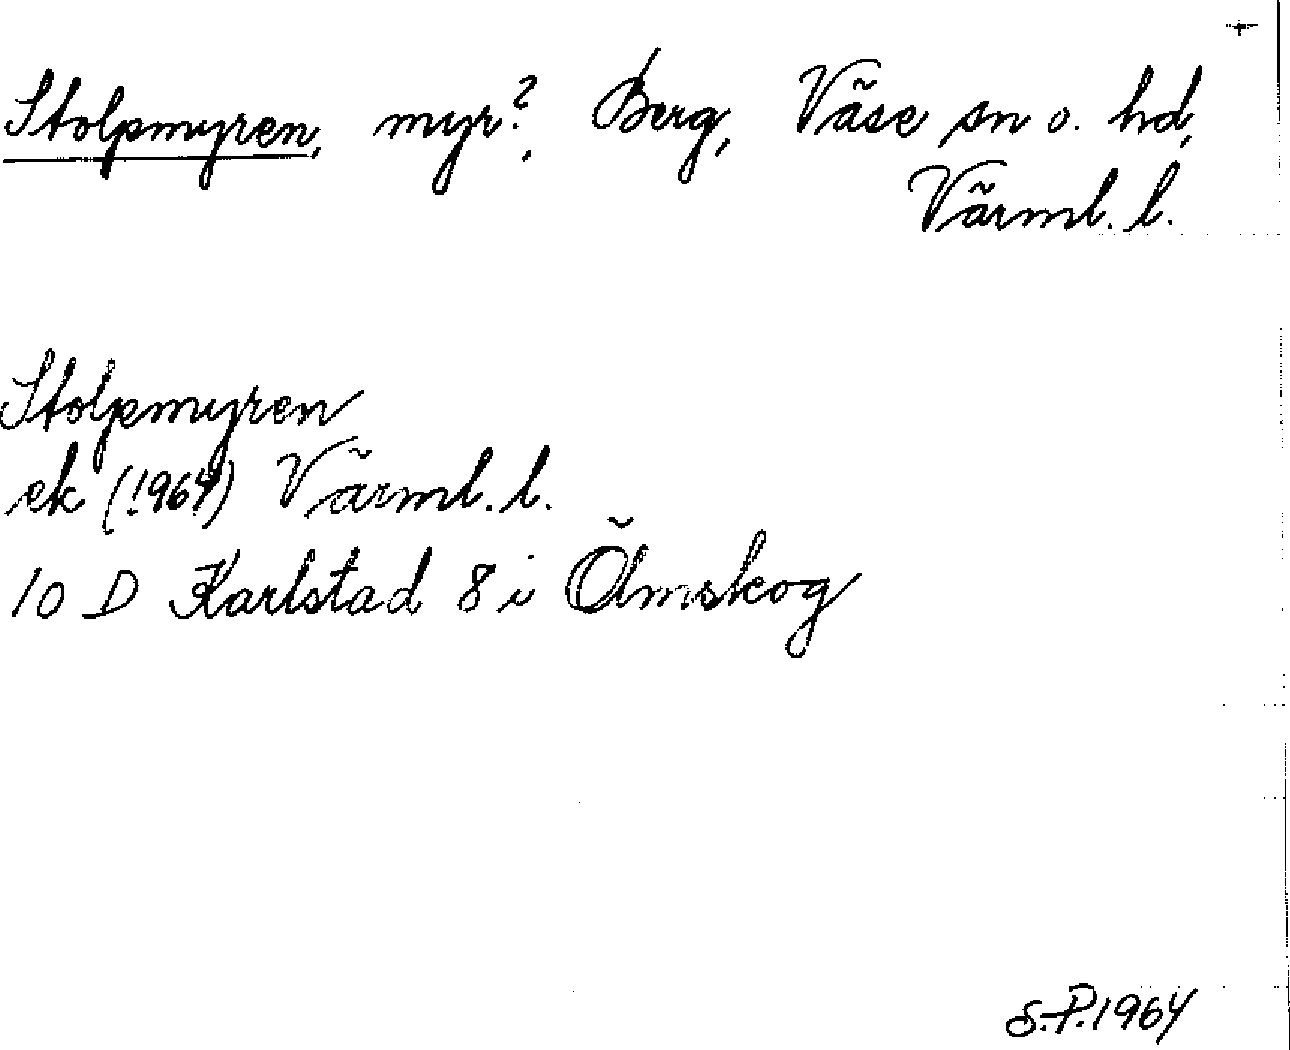 Stolpmyren, myr?, Berg, Väse sn o. hd,
Värml. l.
Stolpmyren
ek (1964) Värml. l.
10 D Karlstad 8 i Ölmskog
S.P. 1964